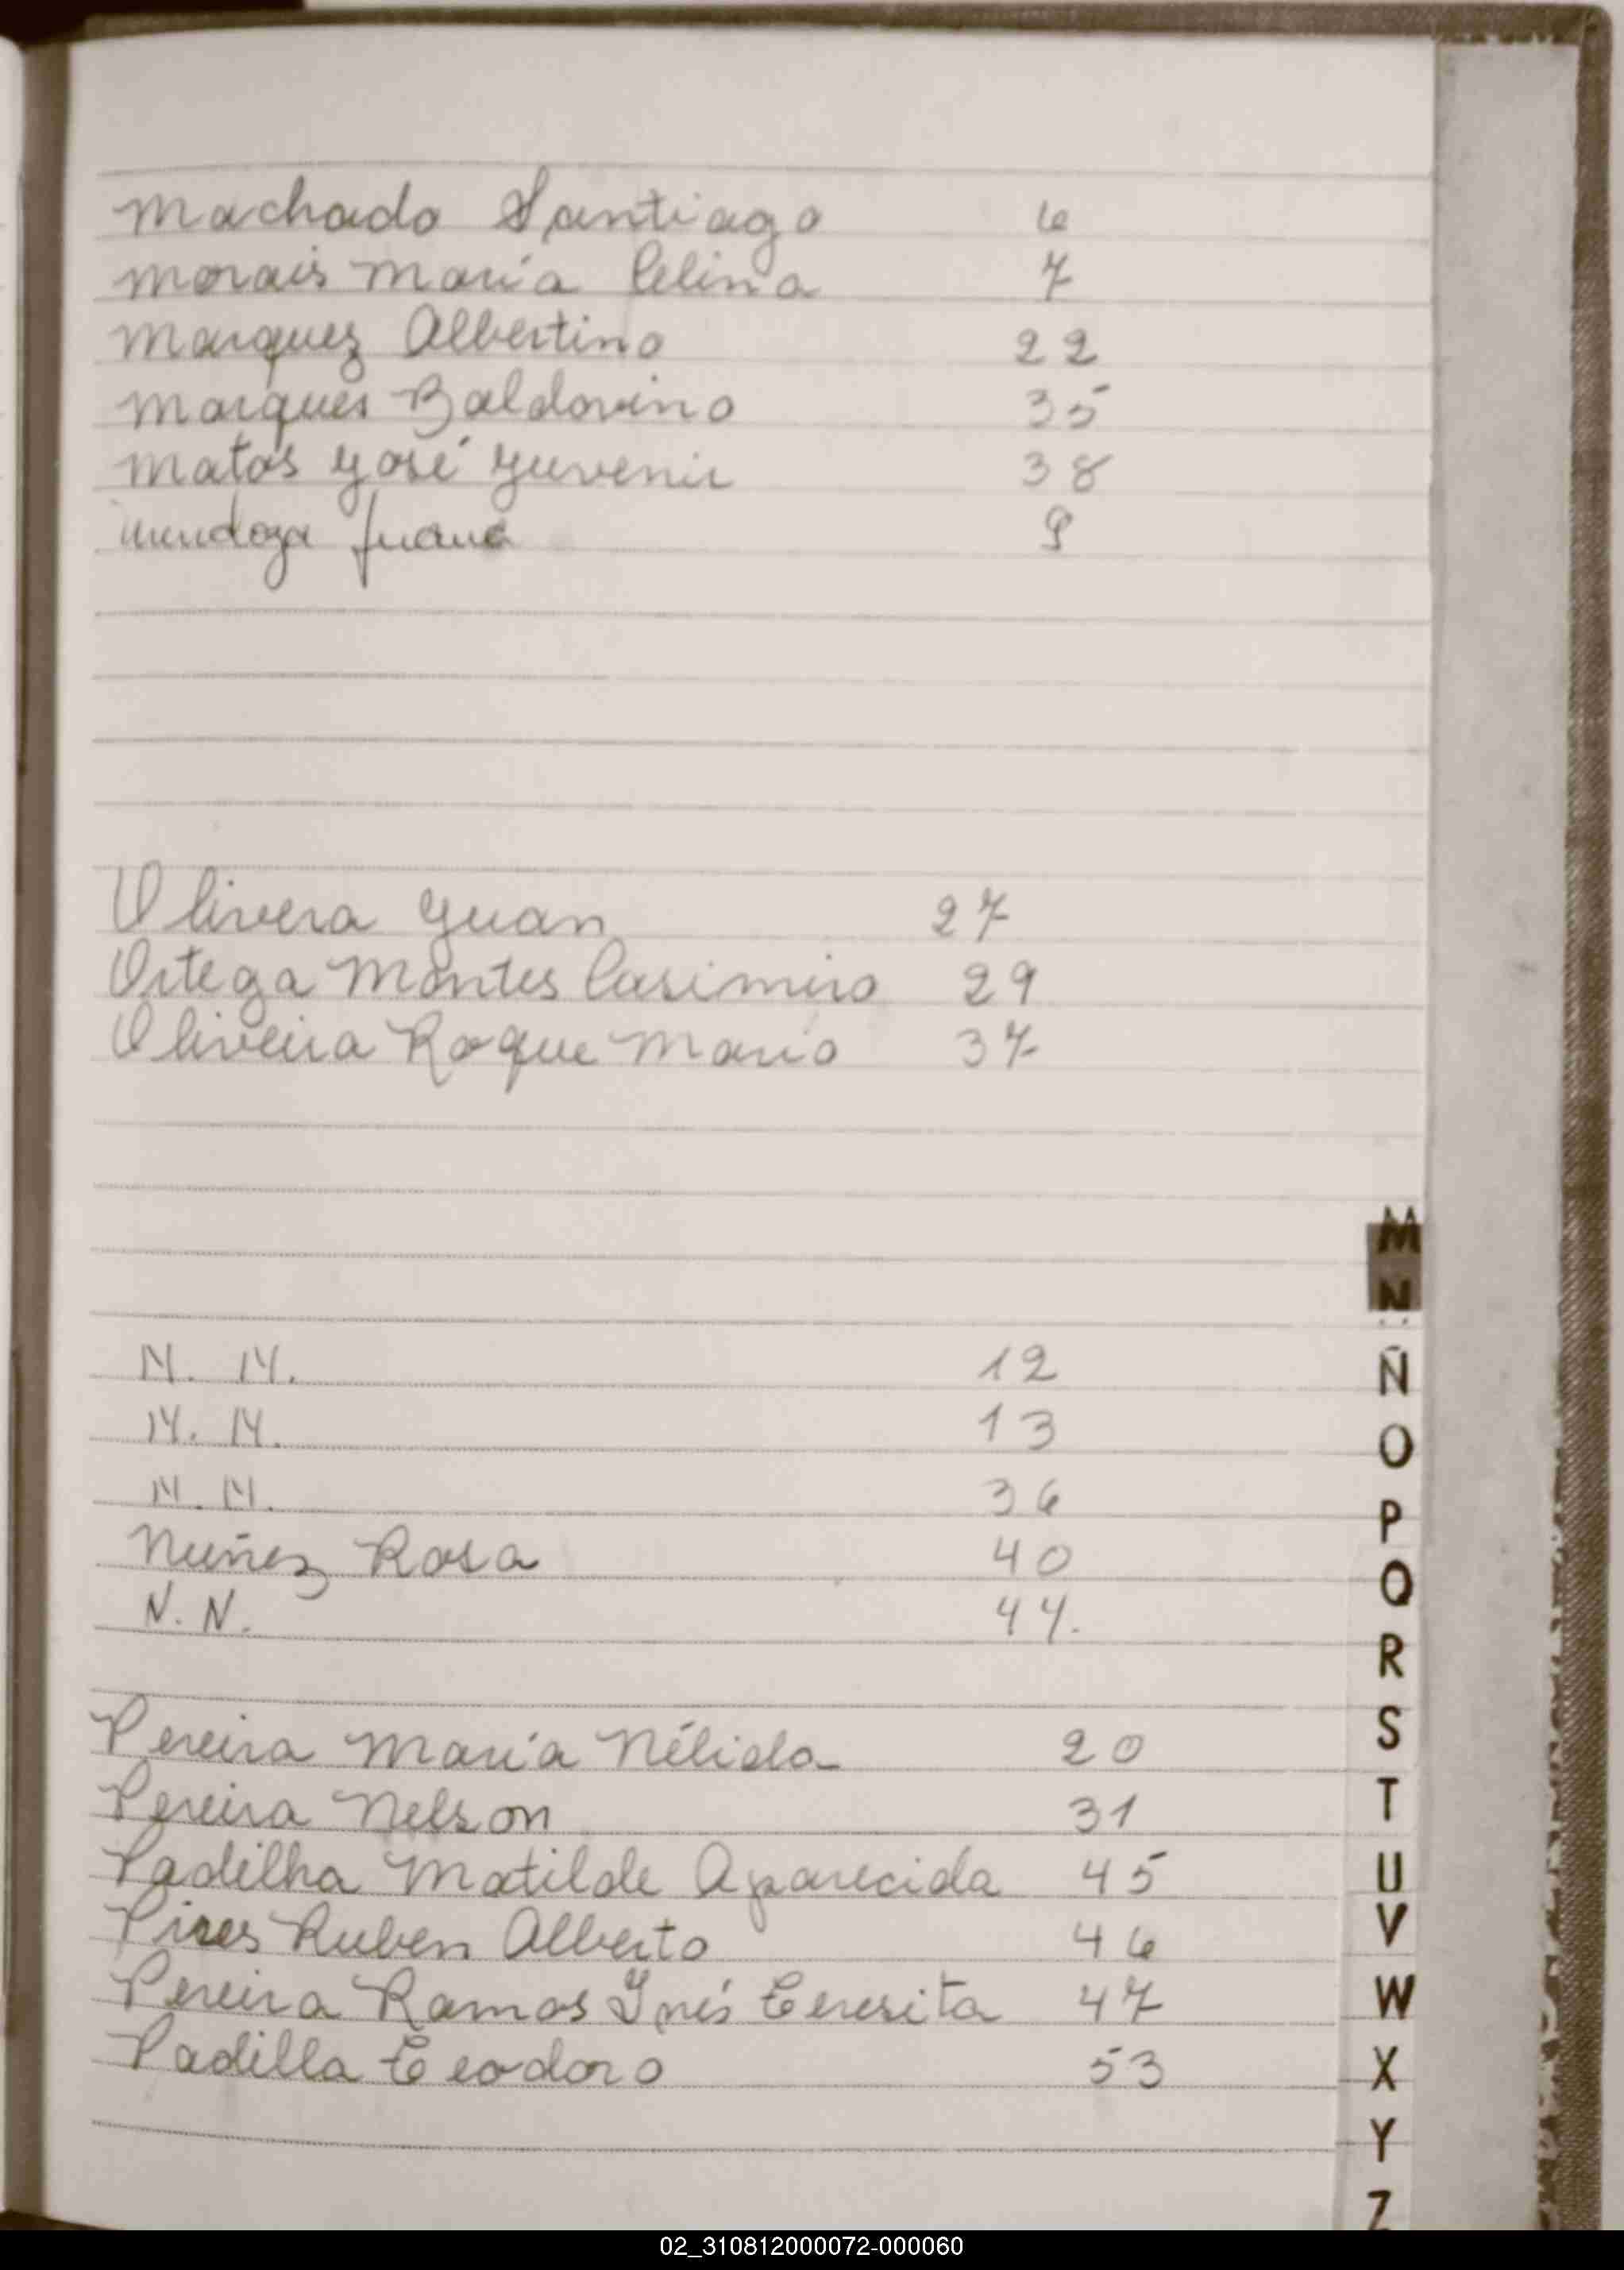 Machado Santiago 6
Morais María Celina 7
Marquez Albertino 22
Marques Baldovino 35
Matos José Juvenir 38
Mendoza Juana 9
Olivera Juan 27
Ortega Montes Casimiro 29
Oliveira Roque Mario 37
N. N. 12
N. N. 13
N. N. 36
Nuñez Rosa 40
N. N. 44.
Pereira María Nélida 20
Pereira Nelson 31
Padilha Matilde Aparecida 45
Pires Ruben Alberto 46
Pereira Ramos Inés Teresita 47
Padilla Teodoro 53
M
N
Ñ
O
P
Q
R
S
T
U
V
W
X
Y
Z
02_310812000072-000060